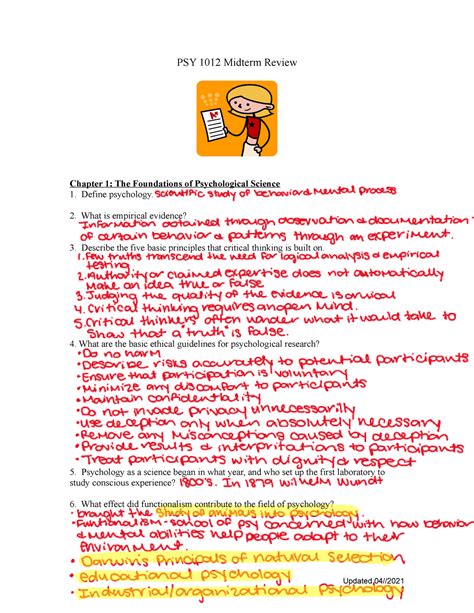 PSY 1012 Midterm Review
A+
Chapter 1: The Foundations of Psychological Science
1. Define psychology. Scientific study of behavior & Mental process
2. What is empirical evidence?
Information obtained through observation & documentation
of certain behavior & patterns through an experiment.
3. Describe the five basic principles that critical thinking is built on.
1. Few truths transcend the need for logical analysis & empirical
testing
2. Authority or claimed expertise does not automatically
Make an idea true or False
3. Judging the quality of the evidence is crucial
4. Critical thinking requires an open Mind.
5. Critical thinkers often wonder what it would take to
Show that a "truth" is False.
4. What are the basic ethical guidelines for psychological research?
• Do no harm
• Describe risks accurately to potential participants
• Ensure that participation is voluntary
• Minimize any discomfort to participants
• Maintain confidentiality
• Do not invade privacy unnecessarily
• Use deception only when absolutely necessary
• Remove any Misconceptions caused by deception
• Provide results & interpritations to participants
• Treat participants with dignity & respect
5. Psychology as a science began in what year, and who set up the first laboratory to
study conscious experience? 1800's. In 1879 Wilhelm Wundt
6. What effect did functionalism contribute to the field of psychology?
• brought the study of animals into psychology.
• Funtionalism - school of psy concerned with how behavior
& Mental abilities help people adapt to their
Environment.
• Darwin's Principals of natural Selection
• educational psychology
• Industrial/organizational psychology
Updated 04//2021